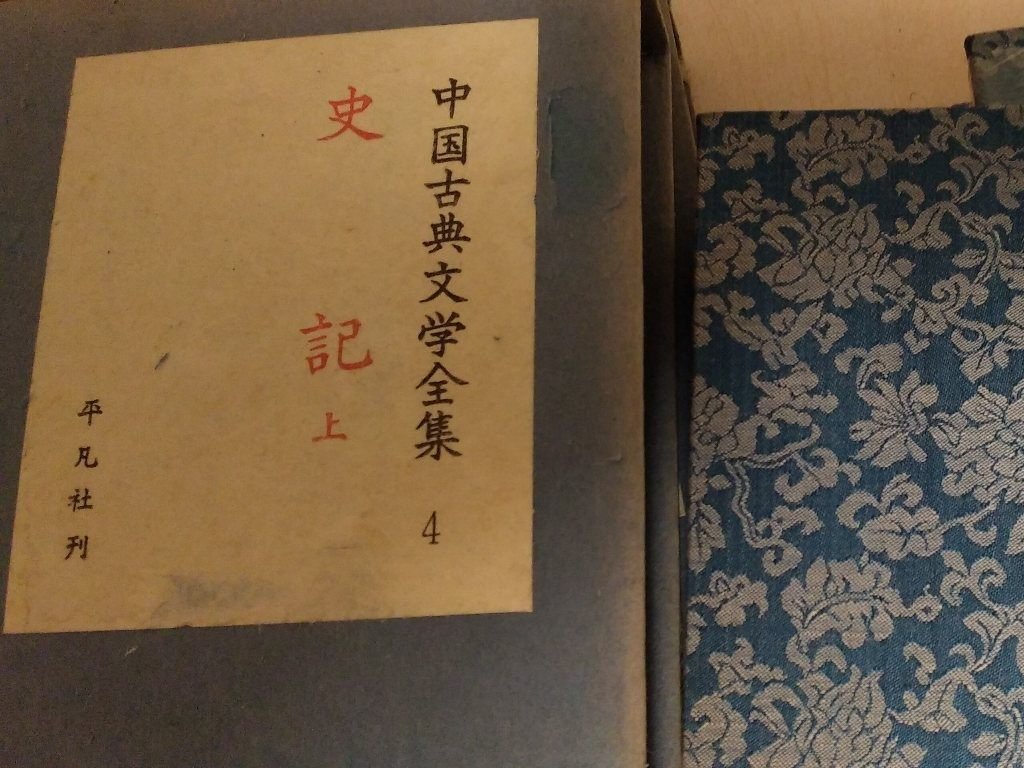 中国古典文学全集 4
史記 上
平凡社刊